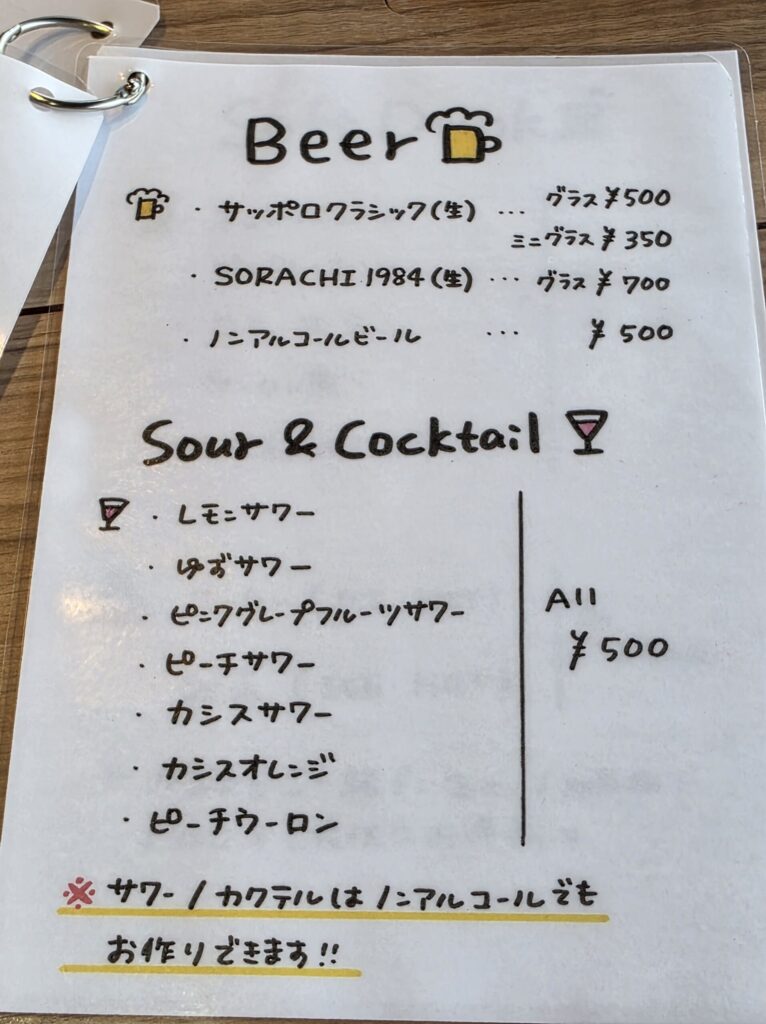 Beer
・サッポロクラシック(生) … グラス ¥500
ミニグラス ¥350
・SORACHI 1984(生) … グラス ¥700
・ノンアルコールビール … ¥500
Sour & Cocktail
・レモンサワー
・ゆずサワー
・ピンクグレープフルーツサワー
・ピーチサワー
・カシスサワー
・カシスオレンジ
・ピーチウーロン
All
¥500
※サワー/カクテルはノンアルコールでも
お作りできます!!